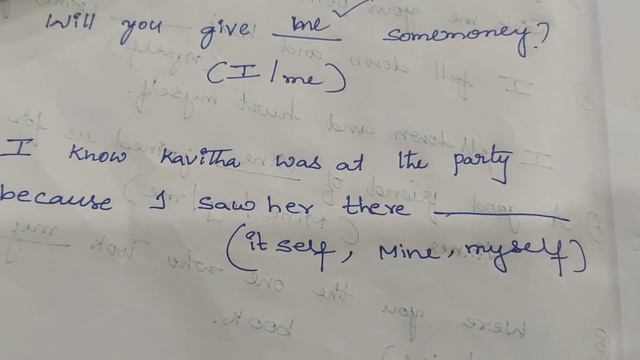 Will you give me somemoney?
(I/me)
I know kavitha was at the party
because I saw her there ________
(itself, Mine, myself)